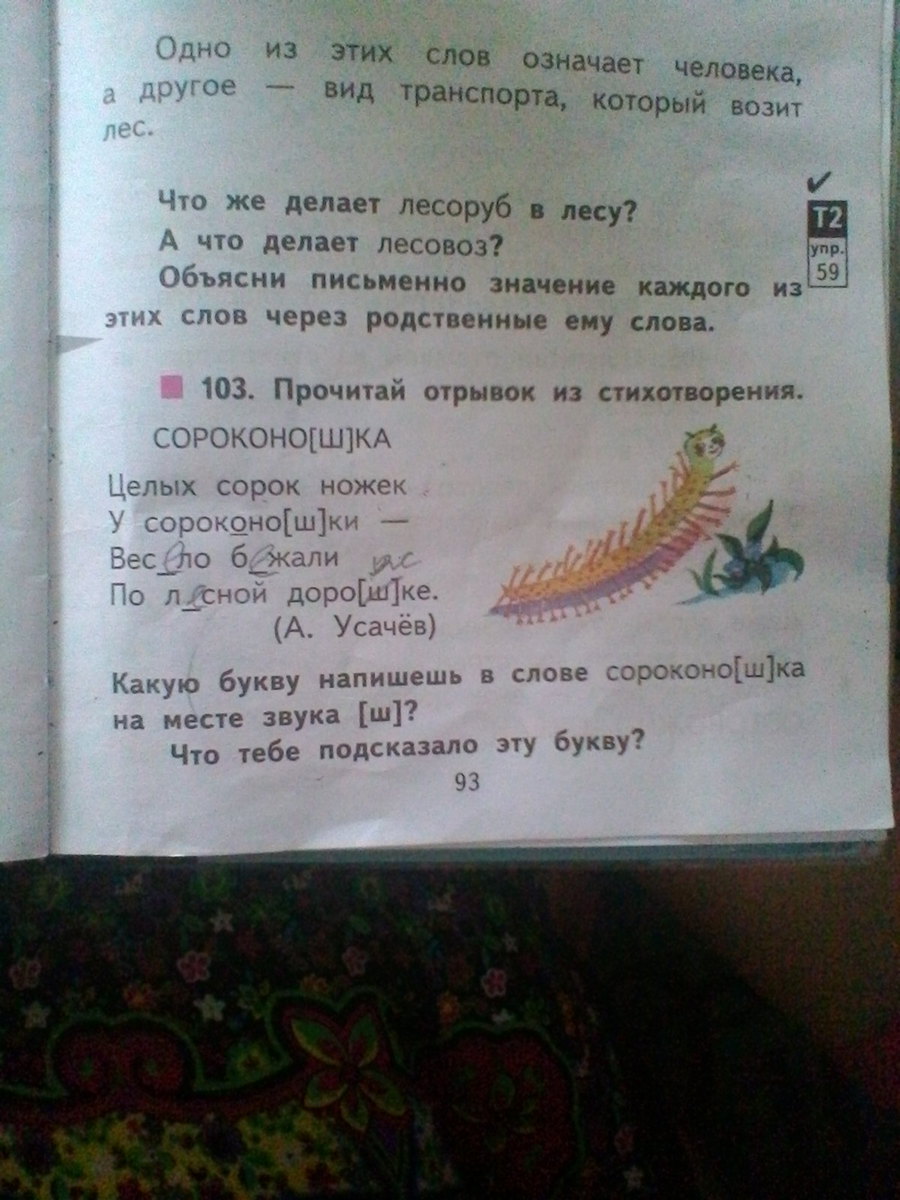 Одно из этих слов означает человека,
а другое — вид транспорта, который возит
лес.
Что же делает лесоруб в лесу?
А что делает лесовоз?
Объясни письменно значение каждого из
этих слов через родственные ему слова.
✔
Т2
упр.
59
103. Прочитай отрывок из стихотворения.
СОРОКОНО[Ш]КА
Целых сорок ножек
У сороконо[ш]ки —
Вес_ело б_ежали
По л_есной доро[ш]ке.
(А. Усачёв)
Какую букву напишешь в слове сороконо[ш]ка
на месте звука [ш]?
Что тебе подсказало эту букву?
93